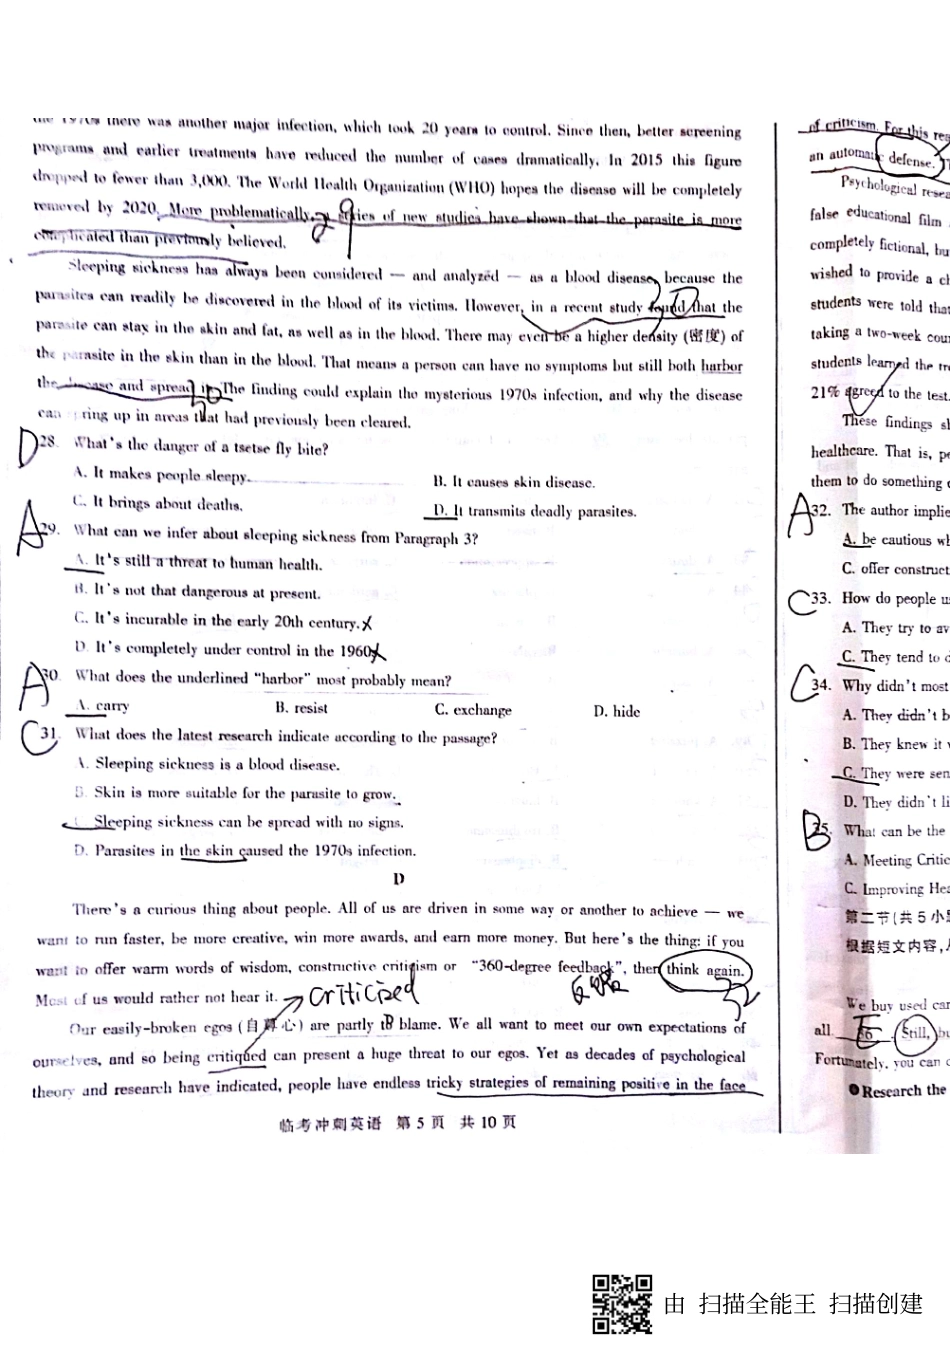 the 1970s there was another major infection, which took 20 years to control. Since then, better screening
programs and earlier treatments have reduced the number of cases dramatically. In 2015 this figure
dropped to fewer than 3,000. The World Health Organization (WHO) hopes the disease will be completely
removed by 2020. More problematically, a series of new studies have shown that the parasite is more
complicated than previously believed.
Sleeping sickness has always been considered — and analyzed — as a blood disease, because the
parasites can readily be discovered in the blood of its victims. However, in a recent study found that the
parasite can stay in the skin and fat, as well as in the blood. There may even be a higher density (密度) of
the parasite in the skin than in the blood. That means a person can have no symptoms but still both harbor
the disease and spread it. The finding could explain the mysterious 1970s infection, and why the disease
can spring up in areas that had previously been cleared.
D 28. What's the danger of a tsetse fly bite?
A. It makes people sleepy.
B. It causes skin disease.
C. It brings about deaths.
D. It transmits deadly parasites.
A 29. What can we infer about sleeping sickness from Paragraph 3?
A. It's still a threat to human health.
B. It's not that dangerous at present.
C. It's incurable in the early 20th century.
D. It's completely under control in the 1960s.
A 30. What does the underlined "harbor" most probably mean?
A. carry B. resist C. exchange D. hide
C 31. What does the latest research indicate according to the passage?
A. Sleeping sickness is a blood disease.
B. Skin is more suitable for the parasite to grow.
C. Sleeping sickness can be spread with no signs.
D. Parasites in the skin caused the 1970s infection.
D
There's a curious thing about people. All of us are driven in some way or another to achieve — we
want to run faster, be more creative, win more awards, and earn more money. But here's the thing: if you
want to offer warm words of wisdom, constructive criticism or "360-degree feedback", then think again.
Most of us would rather not hear it. criticized
Our easily-broken egos (自尊心) are partly to blame. We all want to meet our own expectations of
ourselves, and so being critiqued can present a huge threat to our egos. Yet as decades of psychological
theory and research have indicated, people have endless tricky strategies of remaining positive in the face
临考冲刺英语 第 5 页 共 10 页
of criticism. For this
an automatic defense.
Psychological
false educational film
completely fictional,
wished to provide a
students were told that
taking a two-week
students learned the
21% agreed to the test.
These findings
healthcare. That is,
them to do something
A 32. The author
A. be cautious
C. offer
C 33. How do people
A. They try to
C. They tend to
C 34. Why didn't most
A. They didn't
B. They knew it
C. They were
D. They didn't
B 35. What can be the
A. Meeting
C. Improving
第二节(共 5 小
根据短文内容,
We buy used
all. 36 E Still,
Fortunately, you can
●Research the
由 扫描全能王 扫描创建